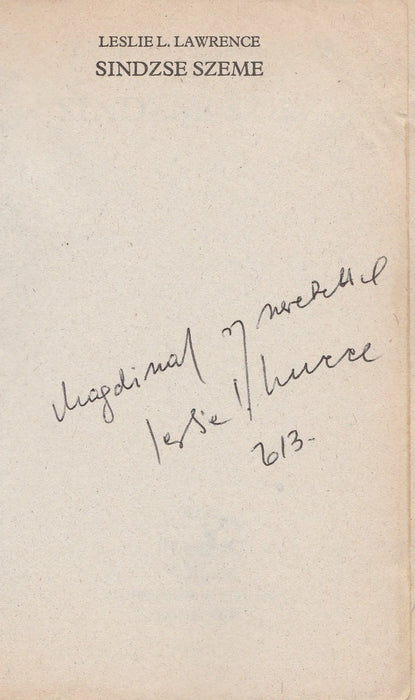 LESLIE L. LAWRENCE
SINDZSE SZEME
Magdinak ny szeretettel
Leslie L. Lawrence
213-